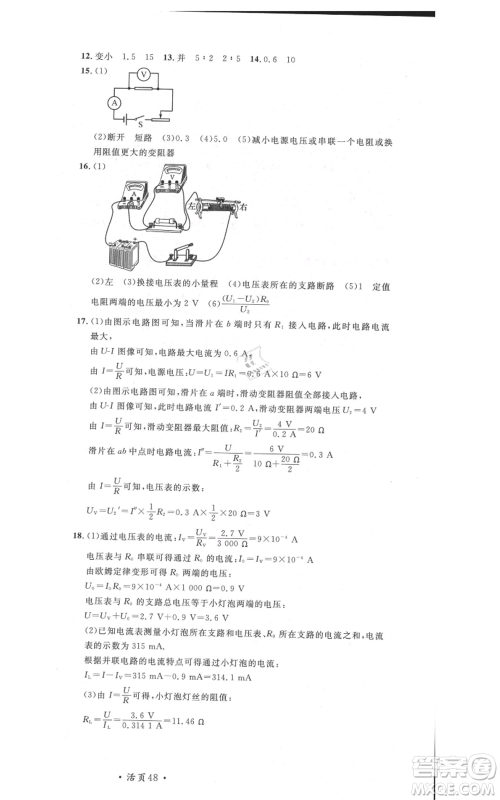 12. 变小 1.5 15 13. 并 5∶2 2∶5 14. 0.6 10
15. (1)
V
A
S
(2)断开 短路 (3)0.3 (4)5.0 (5)减小电源电压或串联一个电阻或换
用阻值更大的变阻器
16. (1)
A
V
左
右
(2)左 (3)换接电压表的小量程 (4)电压表所在的支路断路 (5)1 定值
电阻两端的电压最小为 2 V (6)(U₁－U₂)R₀/U₂
17. (1)由图示电路图可知，当滑片在 b 端时只有 R₁ 接入电路，此时电路电流
最大，
由 U-I 图像可知，电路最大电流为 0.6 A，
由 I＝U/R可知，电源电压：U＝U₁＝IR₁＝0.6 A×10 Ω＝6 V
(2)由图示电路图可知，滑片在 a 端时，滑动变阻器阻值全部接入电路，
由 U-I 图像可知，电路电流 I′＝0.2 A，滑动变阻器两端电压 U₂＝4 V
由 I＝U/R可知，滑动变阻器最大阻值：R₂＝U₂/I′＝4 V/0.2 A＝20 Ω，
滑片在 ab 中点时电路电流：I″＝U/(R₁＋R₂/2)＝6 V/(10 Ω＋20 Ω/2)＝0.3 A
由 I＝U/R可知，电压表的示数：
Uᵥ＝U₂′＝I″×1/2R₂＝0.3 A×1/2×20 Ω＝3 V
18. (1)通过电压表的电流：Iᵥ＝Uᵥ/Rᵥ＝2.7 V/3 000 Ω＝9×10⁻⁴ A
电压表与 R₀ 串联可得通过 R₀ 的电流：I₀＝Iᵥ＝9×10⁻⁴ A
由欧姆定律变形可得 R₀ 两端的电压：
U₀＝I₀R₀＝9×10⁻⁴ A×1 000 Ω＝0.9 V
电压表与 R₀ 的支路总电压等于小灯泡两端的电压：
U＝Uᵥ＋U₀＝2.7 V＋0.9 V＝3.6 V
(2)已知电流表测量小灯泡的电流与电压表、R₀ 支路的电流之和，电流
表的示数为 315 mA.
根据并联电路的电流特点可得通过小灯泡的电流：
I_L＝I－Iᵥ＝315 mA－0.9 mA＝314.1 mA
(3)由 I＝U/R可得，小灯泡灯丝的电阻：
R_L＝U/I_L＝3.6 V/0.314 1 A＝11.46 Ω
· 活页 48 ·